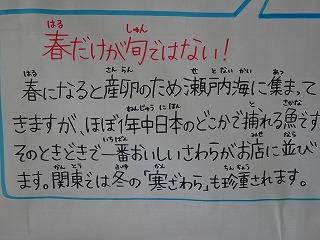 春だけが旬ではない!
春になると産卵のため瀬戸内海に集まって
きますが、ほぼ1年中日本のどこかで捕れる魚です
そのときどきで一番おいしいさわらがお店に並び
ます。関東では冬の「寒ざわら」も珍重されます。